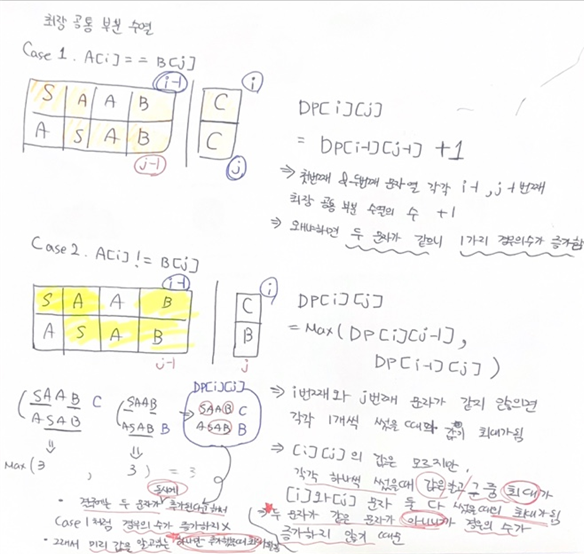 최장 공통 부분 수열
Case 1. A[i] == B[j]
i-1
i
S A A B C
A S A B C
j-1
j
DP[i][j]
= DP[i-1][j-1] +1
⇒ 첫번째 & 두번째 문자열 각각 i-1, j-1 번째
최장 공통 부분 수열의 수 +1
⇒ 왜냐하면 두 문자가 같으니 1가지 경우의수가 증가함
Case 2. A[i] != B[j]
i-1
i
S A A B C
A S A B B
j-1
j
DP[i][j]
= Max(DP[i][j-1],
DP[i-1][j])
DP[i][j]
(SAAB C
ASAB
(SAAB
ASAB B
⇒ SAAB C
ASAB B
Max(3 , 3) = 3
⇒ i번째와 j번째 문자가 같지 않으면
각각 1개씩 썼을 때와 값이 최대가 됨
⇒ [i][j]의 값은 모르지만,
각각 하나씩 썼을때 값을 그 중 최대가
[i]와 [j] 문자 둘 다 썼을때의 최대가 됨
⇒ 두 문자가 같은 문자가 아니니 경우의 수가
증가하지 않기 때문
동시에
· 두 문자가 추가된다고 해서
Case 1처럼 경우의 수가 증가하지 X
· 그래서 미리 값을 알고있는 하나만 추가했을때